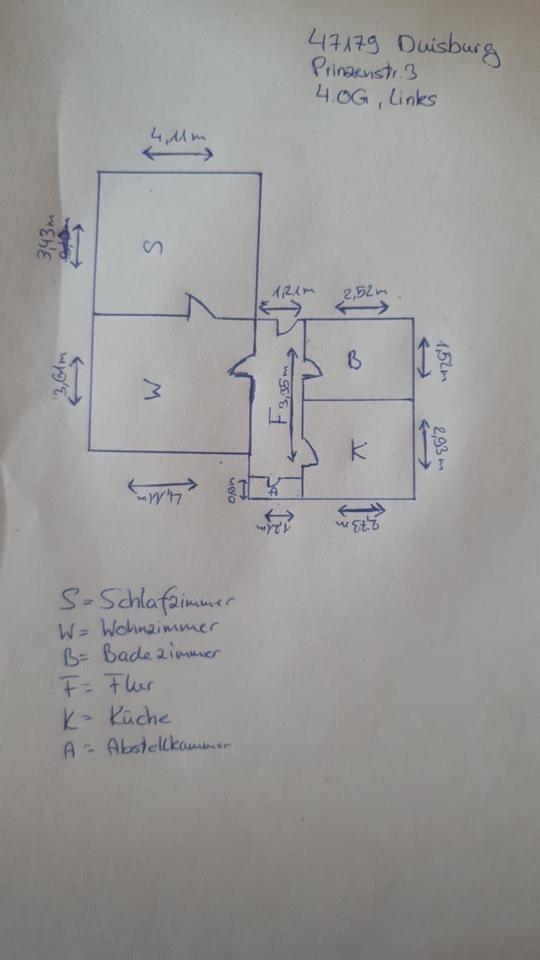 47179 Duisburg
Prinzenstr. 3
4.OG, Links
4,11m
3,43m
S
1,21m
2,52m
3,61m
W
F 3,35m
B
1,52m
K
2,93m
4,11m
0,80
A
1,21m
2,73m
S = Schlafzimmer
W = Wohnzimmer
B = Badezimmer
F = Flur
K = Küche
A = Abstellkammer